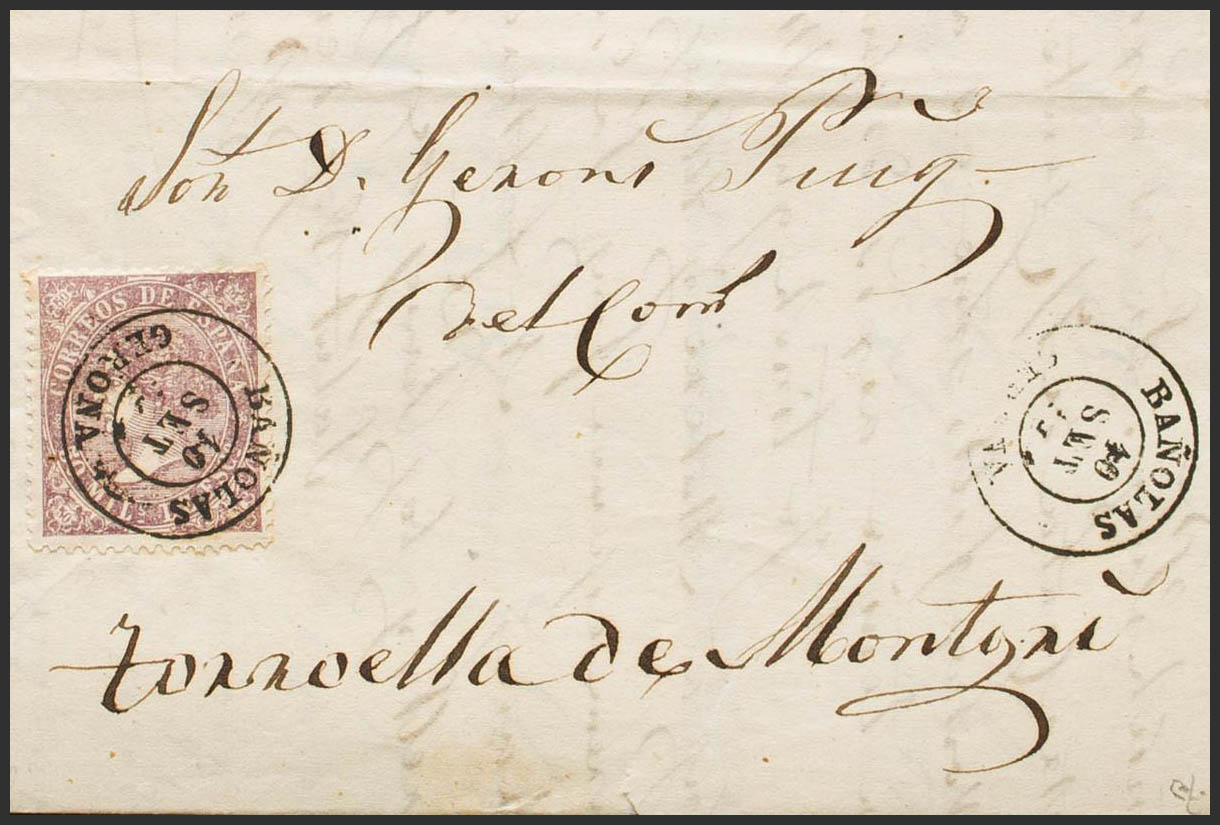 Sor D. Geroni Puig
del Com
torroella de Montgri
CORREOS DE ESPAÑA
BAÑOLAS
GERONA
10
SET
BAÑOLAS
10
SET